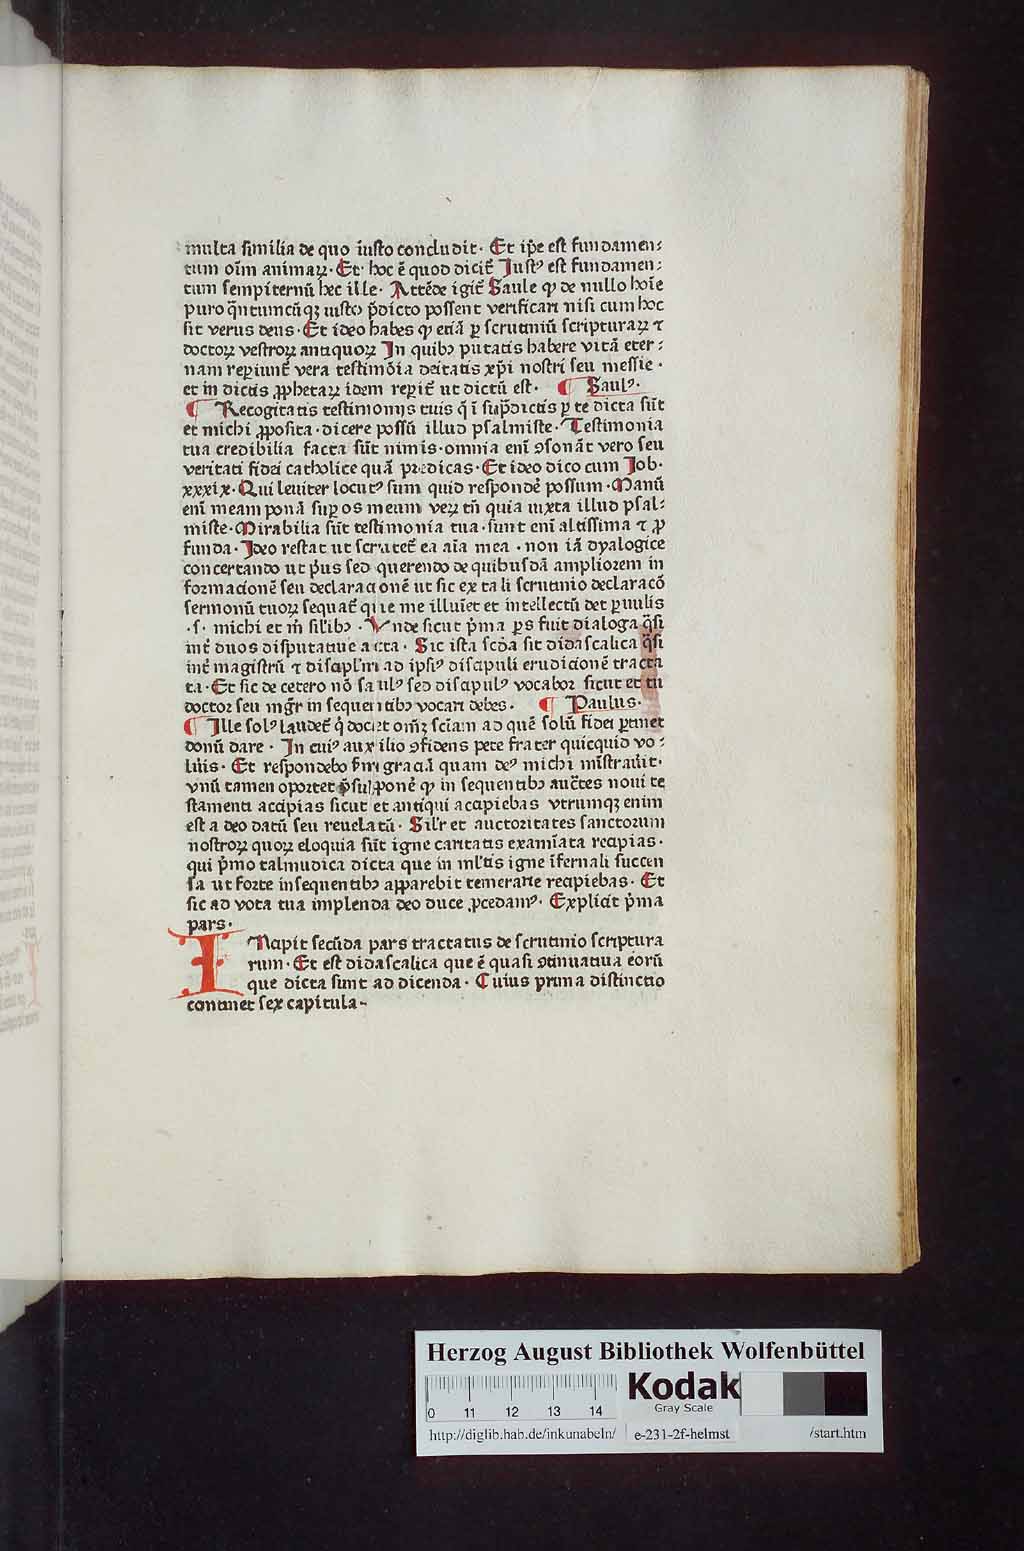 multa similia de quo iusto concludit· Et ip̄e est fundamen⸗
tum oīm animaꝝ· Et hoc ē quod dicit̄ Iustꝰ est fundamen⸗
tum sempiternū hec ille· Attēde igit̄ Saule ꝙ de nullo hoīe
puro q̄ntumcūqꝫ iusto p̄dicto possent verificari nisi cum hoc
sit verus deus· Et ideo habes ꝙ etiā ꝑ scrutiniū scripturaꝝ ⁊
doctoꝝ vestroꝝ antiquoꝝ In quibꝫ putatis habere vitā eter⸗
nam reꝑiunt̄ vera testimōia deitatis xp̄i nostri seu messie·
et in dictis ꝓphetaꝝ idem reꝑit̄ ut dictū est· ¶ Saulꝰ·
¶ Recogitatis testimonijs tuis q̄ ī sup̄dictis ꝑ te dicta sūt
et michi ꝓposita· dicere possū illud psalmiste· Testimonia
tua credibilia facta sūt nimis· omnia enī ꝯsonāt vero seu
veritati fidei catholice quā predicas· Et ideo dico cum Job·
xxxix· Qui leviter locutꝰ sum quid respondē possum· Manū
enī meam ponā suꝑ os meum veꝝ tn̄ quia iuxta illud psal⸗
miste· Mirabilia sūt testimonia tua· sunt enī altissima ⁊ ꝓ
funda· Ideo restat ut scrutet̄ ea aīa mea· non iā dyalogice
concertando ut p̄us sed querendo de quibusdā ampliorem in
formacionē seu declaracionē ut sic ex tali scrutinio declaracō
sermonū tuoꝝ sequat̄ que me illuīet et intellectū det ꝑuulis
·s· michi et m̄ sil'ibꝫ· Vnde sicut p̄ma ꝑs fuit dialoga q̄si
int̄ duos disputatiue acta· Sic ista scd̄a sit didascalica q̄si
int̄ magistrū ⁊ discipl'm ad ipsiꝰ discipuli erudicionē tracta
ta· Et sic de cetero nō saulꝰ sed discipulꝰ vocabor sicut et tu
doctor seu mgr̄ in sequentibꝫ vocari debes· ¶ Paulus·
¶ Ille solꝰ laudet̄ q̄ docet om̄ꝫ sciam ad quē solū fidei ꝑtinet
donū dare· In cuiꝰ auxilio ꝯfidens pete frater quicquid vo⸗
lūis· Et respondebo s̄m graciā quam deꝰ michi mīstrauit·
vnū tamen oportet p̄supponē ꝙ in sequentibꝫ auctes noui te
stamenti accipias sicut et antiqui accipiebas vtrumqꝫ enim
est a deo datū seu reuelatū· Sil'r et auctoritates sanctorum
nostroꝝ quoꝝ eloquia sūt igne caritatis examīata recipias·
qui p̄mo talmudica dicta que in ml'tis igne īfernali succen
sa ut forte insequentibꝫ apparebit temerarie recipiebas· Et
sic ad vota tua implenda deo duce ꝓcedamꝰ· Explicit p̄ma
pars·
INcipit secūda pars tractatus de scrutinio scriptura
rum· Et est didascalica que ē quasi ꝯtinuatiua eorū
que dicta sunt ad dicenda· Cuius prima distinctio
continet sex capitula⁓
Herzog August Bibliothek Wolfenbüttel
0 11 12 13 14
Kodak
Gray Scale
http://diglib.hab.de/inkunabeln/ e-231-2f-helmst /start.htm